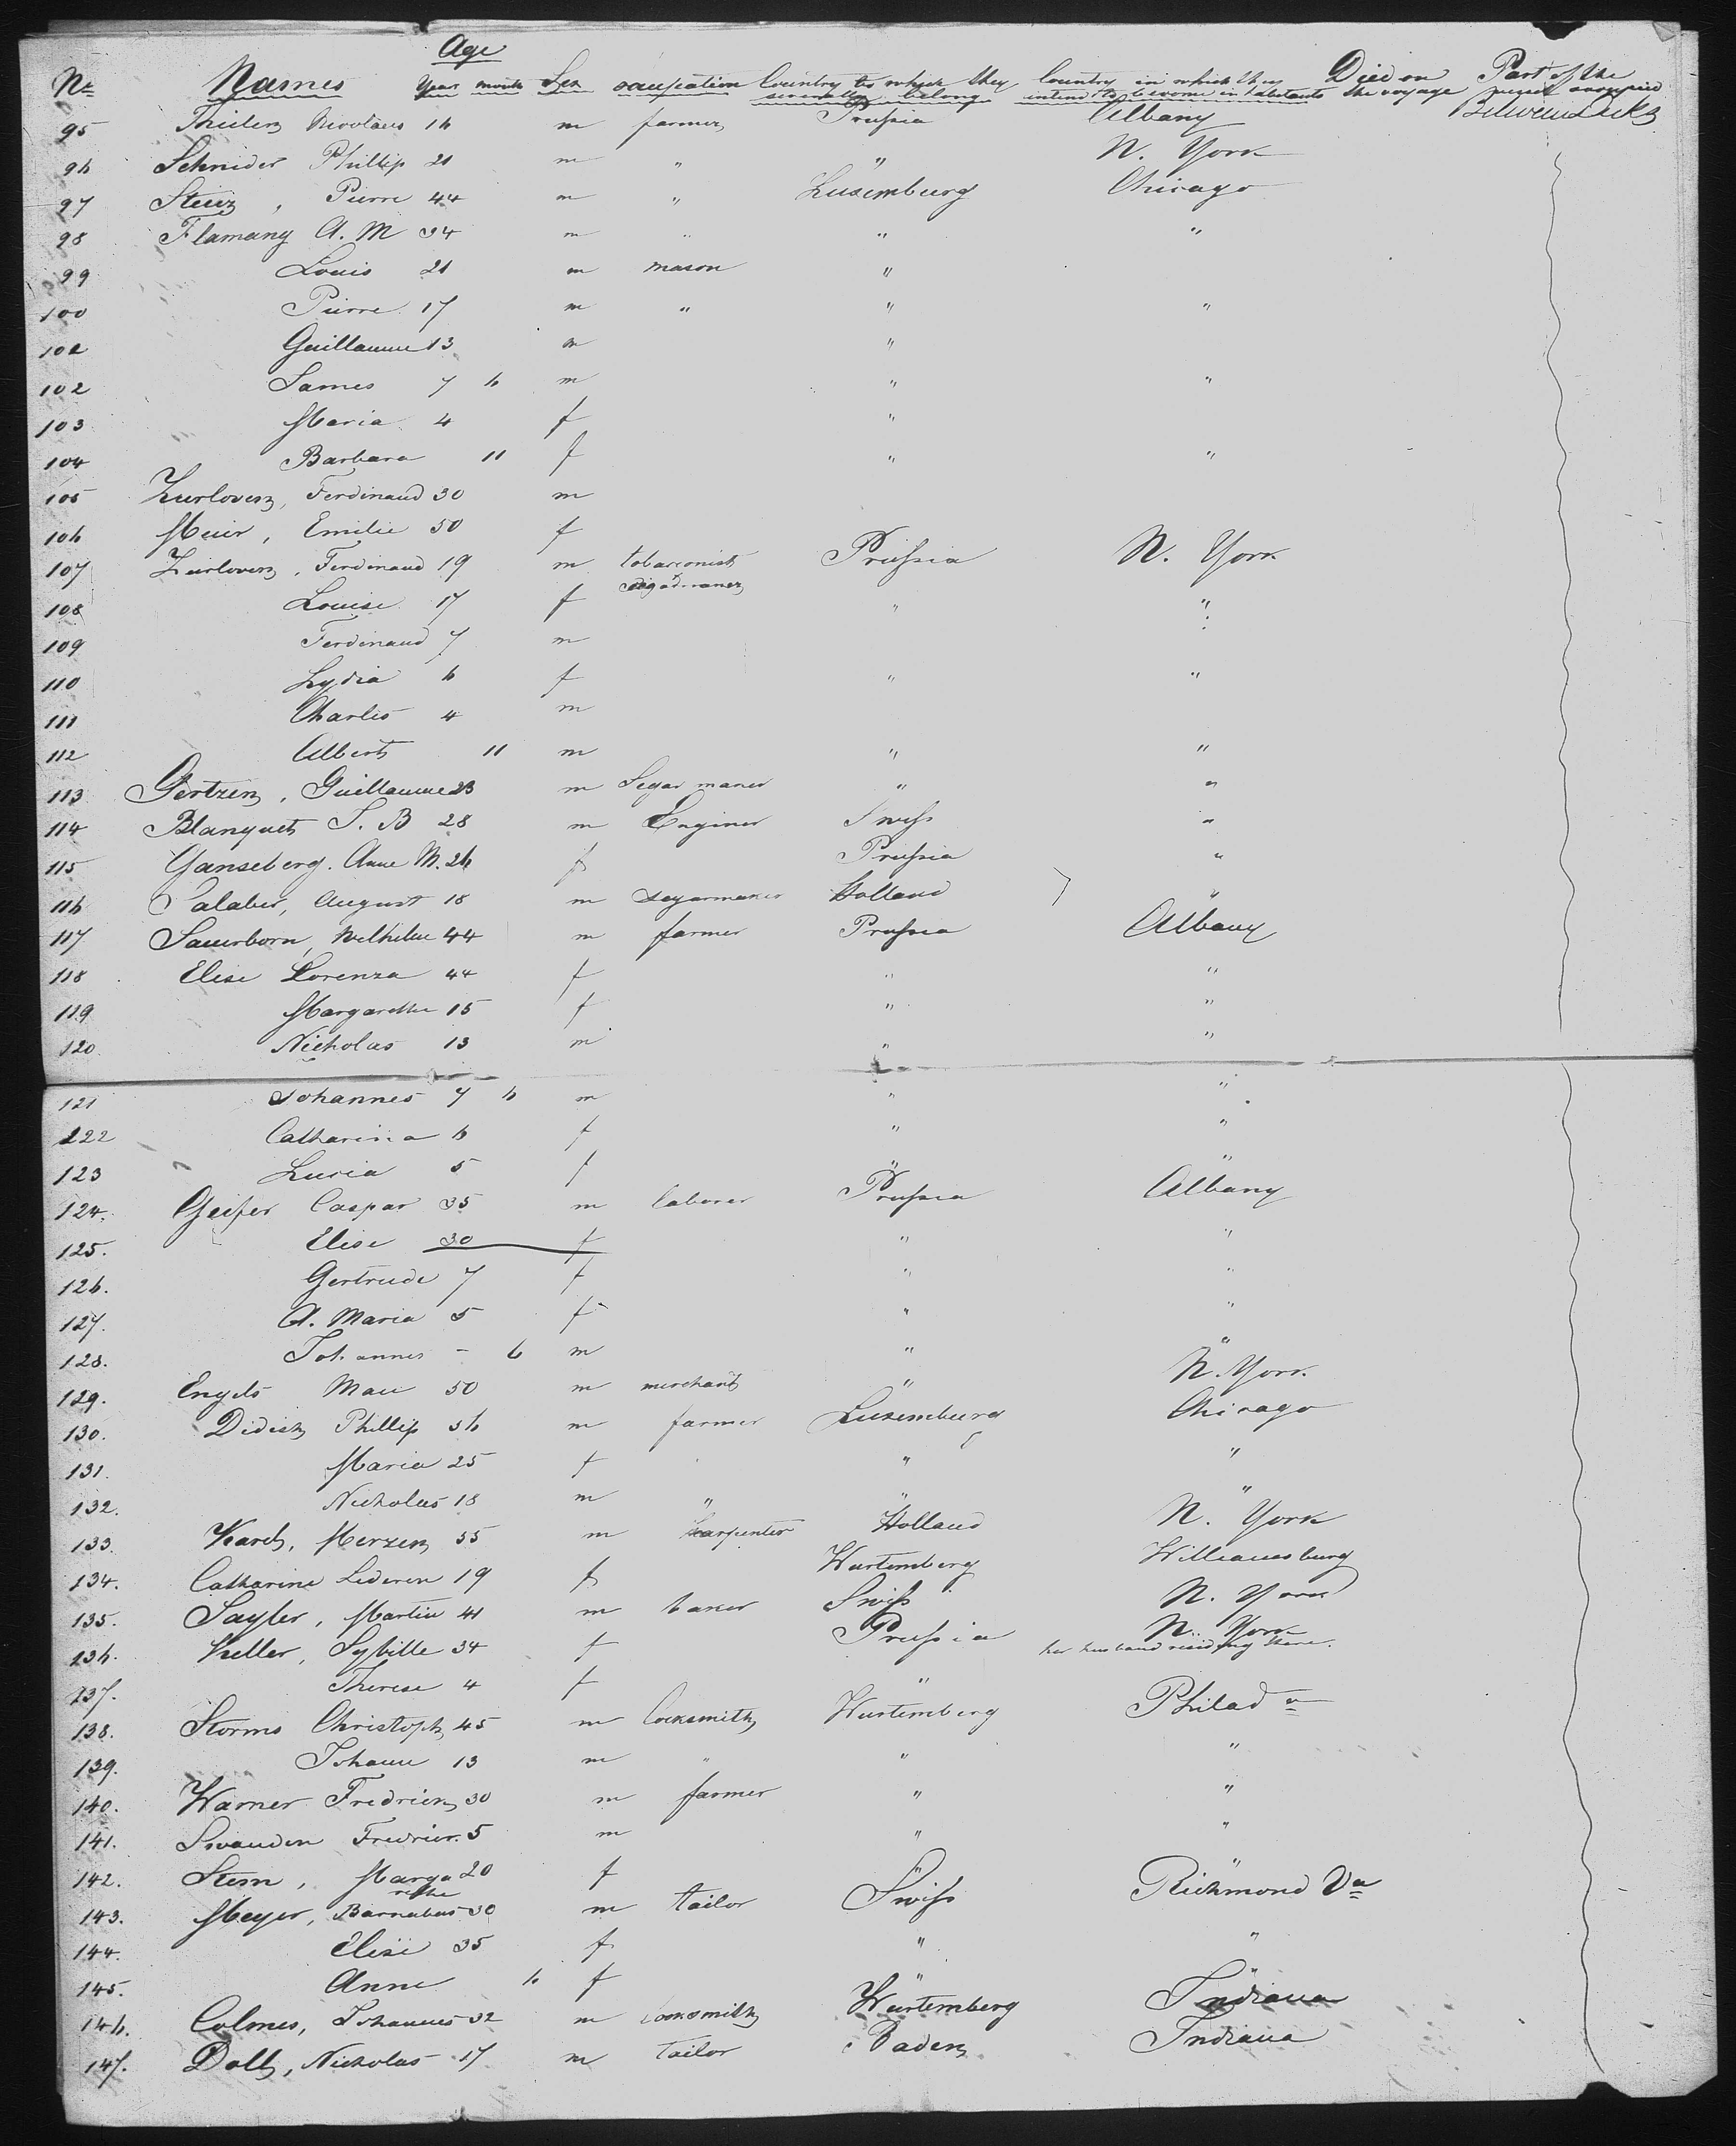 Age
No Names Year month Sex occupation Country to which they severally belong Country in which they intend to become inhabitants Died on the voyage Part of the vessel occupied
95 Nicolaus 16 m farmer Prussia Albany Between Decks
96 Schnider Phillip 21 m " " N. York
97 Pierre 44 m " Luxemburg Chicago
98 Flamany A. M 34 m " " "
99 Louis 21 m mason "
100 Pierre 17 m " " "
102 Guillaume 13 m "
102 James 7 6 m " "
103 Maria 4 f "
104 Barbara 11 f " "
105 Ferdinand 30 m
106 Meir, Emilie 50 f
107 Ferdinand 19 m tobacconist Prussia N. York
108 Louise 17 f " "
109 Ferdinand 7 m "
110 Lydia 6 f " "
111 Charles 4 m
112 Albert 11 m " "
113 Gertzen, Guillaume 23 m Segar maker " "
114 Blanquet J. B 28 m Enginer Swiss "
115 Ganseberg. Anne M. 26 f Prussia "
116 August 18 m Segarmaker Holland "
117 Sauerborn, Wilhelm 44 m farmer Prussia Albany
118 Elise Lorenza 44 f " "
119 Margarethe 15 f " "
120 Nicholas 13 m " "
121 Johannes 7 6 m " "
122 Catharina 6 f " "
123 Lucia 5 f " "
124. Caspar 35 m laborer Prussia Albany
125. Elise 30 f " "
126. Gertrude 7 f " "
127. A. Maria 5 f " "
128. Johannes - 6 m " "
129. Engels 50 m merchant " N. York
130. Phillip 56 m farmer Luxemburg Chicago
131. Maria 25 f " "
132. Nicholas 18 m " " "
133. 55 m carpenter Holland N. York
134. Catharine Lederer 19 f Wurtemberg Williamsburg
135. Sayler, Martin 41 m baker Swiss N. York
136. Keller, Sybille 34 f Prussia N. York
her husband residing there.
137. Therese 4 f "
138. Storms Christoph 45 m locksmith Wurtemberg Philada
139. Johann 13 m " " "
140. Warner Fredrick 30 m farmer " "
141. Fredrick 5 m " "
142. Stern, Margarethe 20 f " "
143. Meyer, Barnabas 30 m tailor Swiss Richmond Va
144. Elise 35 f " "
145. Anne 6 f " "
146. Colmes, Johannes 32 m locksmith Würtemberg Indiana
147. Doll, Nicholas 17 m tailor Baden Indiana